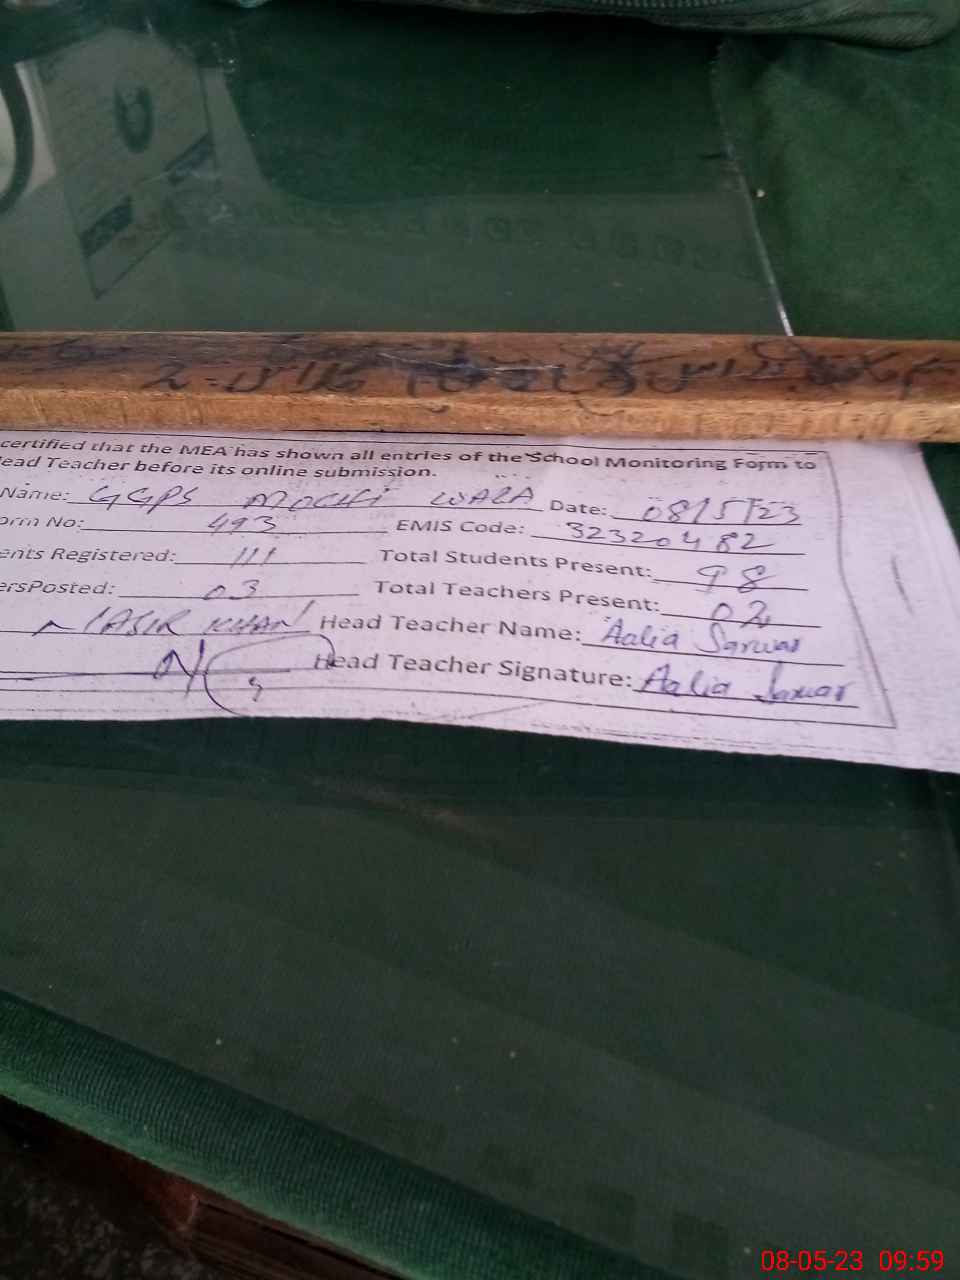 certified that the MEA has shown all entries of the School Monitoring Form to
ead Teacher before its online submission.
Name: GGPS MOCHI WALA Date: 08/5/23
orm No: 493 EMIS Code: 32320482
ents Registered: 111 Total Students Present: 98
ersPosted: 03 Total Teachers Present: 02
NASIR KHAN Head Teacher Name: Aalia Sarwar
Head Teacher Signature: Aalia Sarwar
08-05-23 09:59